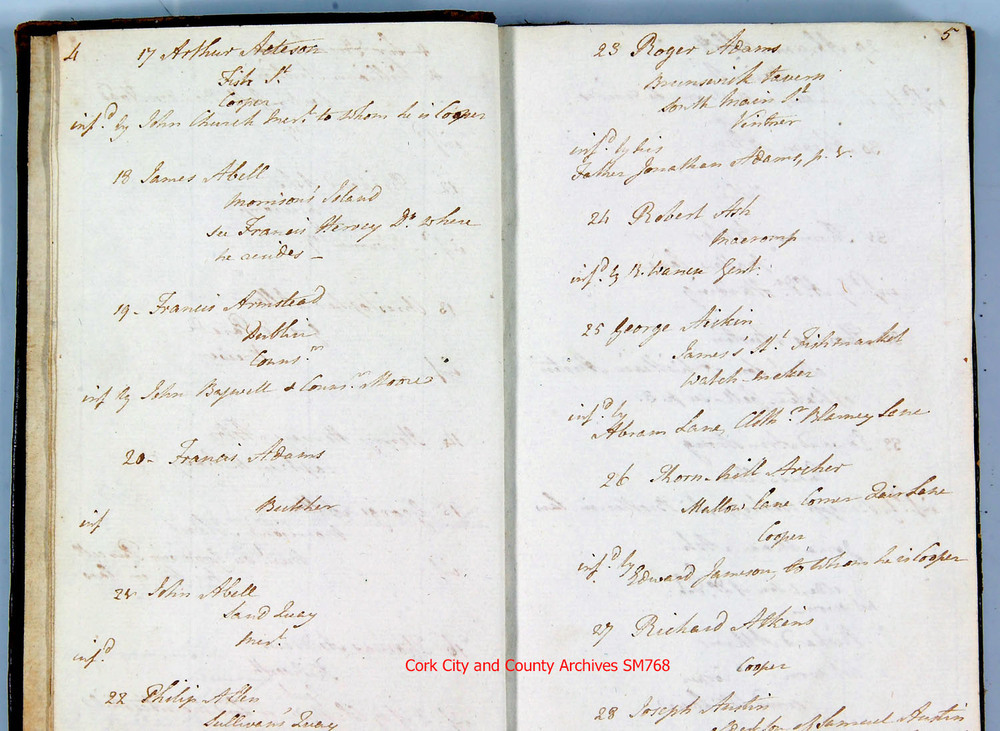 4
17 Arthur Acteson
Fish St
Cooper
infd by John Church Mert to whom he is Cooper
18 James Abell
Morrison's Island
See Francis Hervey Dr where
he resides -
19 - Francis Armstead
Dublin
Counsr
inf by John Bagwell & Counsr Moore
20 - Francis Adams
Butcher
inf
21 John Abell
Sand Quay
Mert
infd
22 Philip Allen
Sullivan's Quay
5
23 Roger Adams
Brunswick tavern
South Main St
Vintner
infd by his
Father Jonathan Adams, p.
24 Robert Ash
Macromp
infd by R. Warren Gent.
25 George Aickin
James's St Fishmarket
Watch-maker
infd by
Abram Lane, Clothr Blarney Lane
26 Thornhill Archer
Mallow Lane Corner Fair Lane
Cooper
infd by Edward Jameson, to whom he is Cooper
27 Richard Atkins
Cooper
28 Joseph Austin
son of Samuel Austin
Cork City and County Archives SM768